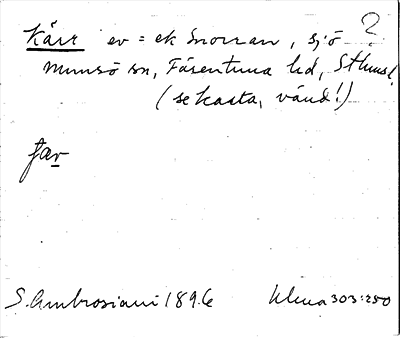 Kärr ev = ek Snorran, sjö ?
Munsö sn, Färentuna hd, Sthms l.
(se kasta, vänd!)
far
S. Ambrosiani 1896 Uluna 303:250